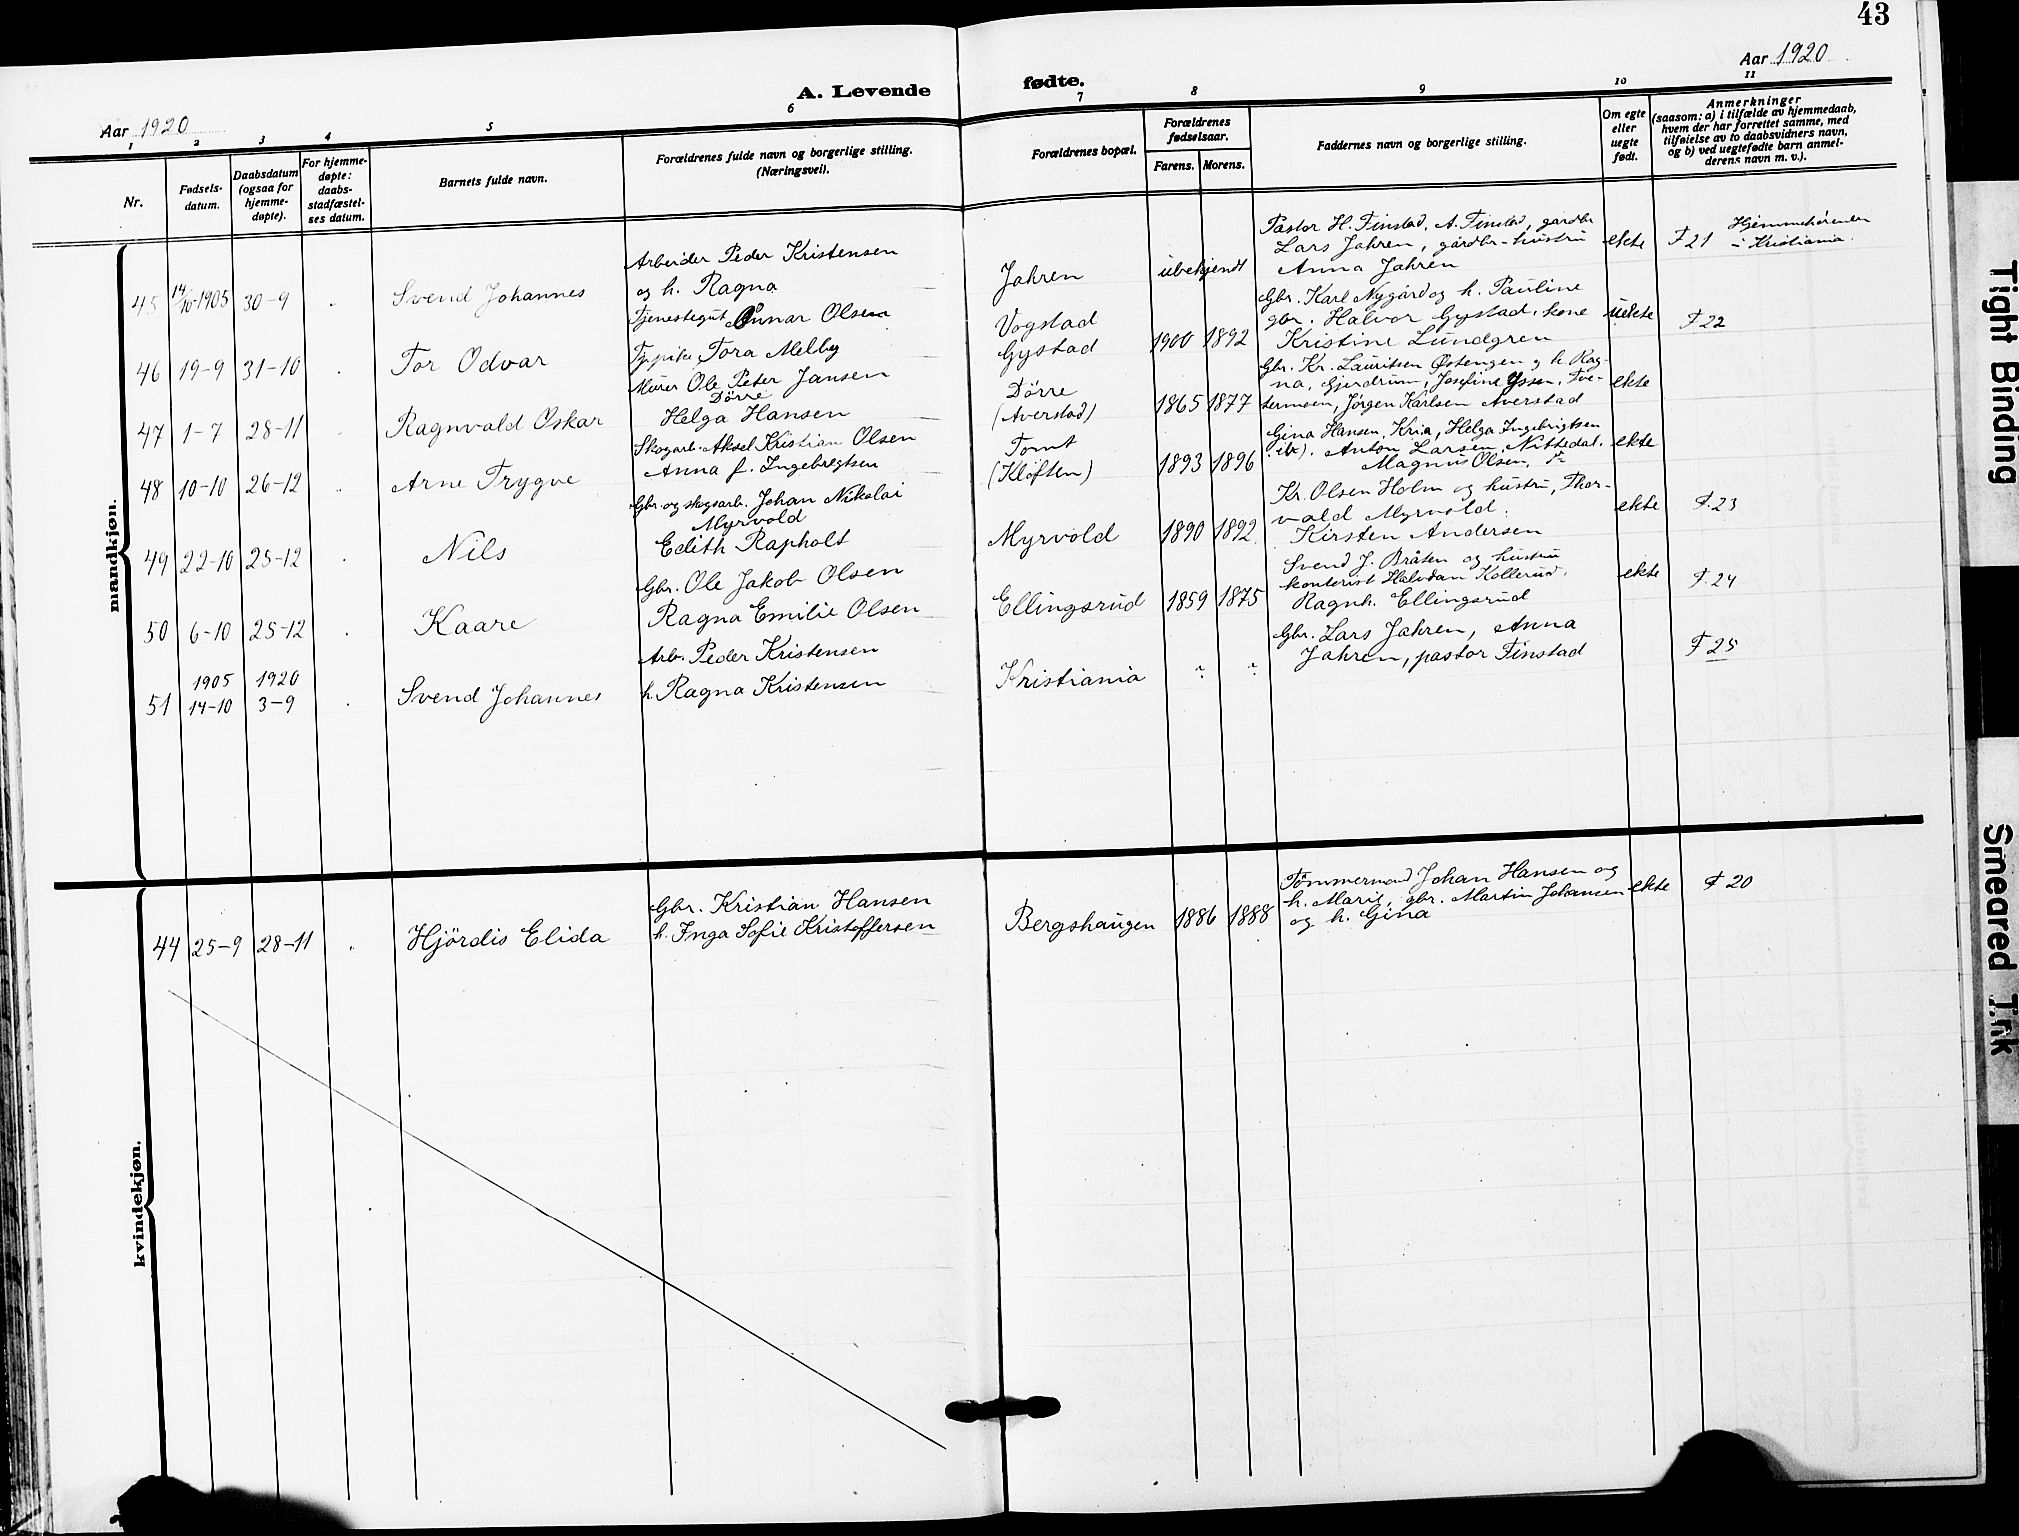 43
Aar 1920
Aar 1920
A. Levende fødte.
1 2 3 4 5 6 7 8 9 10 11
Nr.
Fødsels-
datum.
Daabsdatum
(ogsaa for
hjemme-
døpte).
For hjemme-
døpte:
daabs-
stadfæstel-
ses datum.
Barnets fulde navn.
Forældrenes fulde navn og borgerlige stilling.
(Næringsvei).
Forældrenes bopæl.
Forældrenes
fødselsaar.
Farens. Morens.
Faddernes navn og borgerlige stilling.
Om egte
eller
uegte
født.
Anmerkninger
(saasom: a) i tilfælde av hjemmedaab,
hvem der har forrettet samme, med
tilføielse av to daabsvidners navn,
og b) ved uegtefødte barn anmel-
derens navn m. v.).
mandkjøn.
45 14/10-1905 30-9 Svend Johannes
Arbeider Peder Kristensen
og h. Ragna
Jahren
ubekjendt
Pastor H. Finstad, A. Finstad, gardbr
Lars Jahren, gårdbr-hustru
Anna Jahren
ekte
F 21
Hjemmehørende
i Kristiania.
46 19-9 31-10 Tor Odvar
Tjenestegut Gunnar Olsen
Tora Melby
Vogstad
Gystad
1900 1892
Gbr. Karl Nygård og h. Pauline
gbr. Halvor Gystad, kone
Kristine Lundgren
uekte
F 22
47 1-7 28-11 Ragnvald Oskar
Murer Ole Peter Jansen
Dörre
Helga Hansen
Dörre
(Averstad)
1865 1877
Gbr. Kr. Lauritsen Østengen og h. Rag-
na, Gjerdrum, Josefine Tve-
termoen, Jörgen Karlsen Averstad
ekte
48 10-10 26-12 Arne Trygve
Skogarb. Aksel Kristian Olsen
Anna f. Ingebregtsen
Tomt
(Klöften)
1893 1896
Gina Hansen, Kria, Helga Ingebrigtsen
Anton Larsen, Nittedal.
Magnus Olsen,
ekte
49 22-10 25-12 Nils
Gbr. og skogsarb. Johan Nikolai
Myrvold
Edith Rapholt
Myrvold
1890 1892
Kr. Olsen Holm og hustru, Thor-
vald Myrvold.
Kirsten Andersen
ekte
F. 23
50 6-10 25-12 Kaare
Gbr. Ole Jakob Olsen
Ragna Emilie Olsen
Ellingsrud
1859 1875
Svend J. Bråten og hustru
kontorist Halvdan Kollerud,
Ragnh. Ellingsrud
ekte
F. 24
51 1905 14-10 1920 3-9 Svend Johannes
Arb. Peder Kristensen
h. Ragna Kristensen
Kristiania
? ?
Gbr. Lars Jahren, Anna
Jahren, pastor Finstad
F 25
kvindekjøn.
44 25-9 28-11 Hjördis Elida
Gbr. Kristian Hansen
h. Inga Sofie Kristoffersen
Bergshaugen
1886 1888
Tömmermand Johan Hansen og
h. Marie, gbr. Martin Johansen
og h. Gina
ekte
F 20
Tight Binding
Smeared Ink